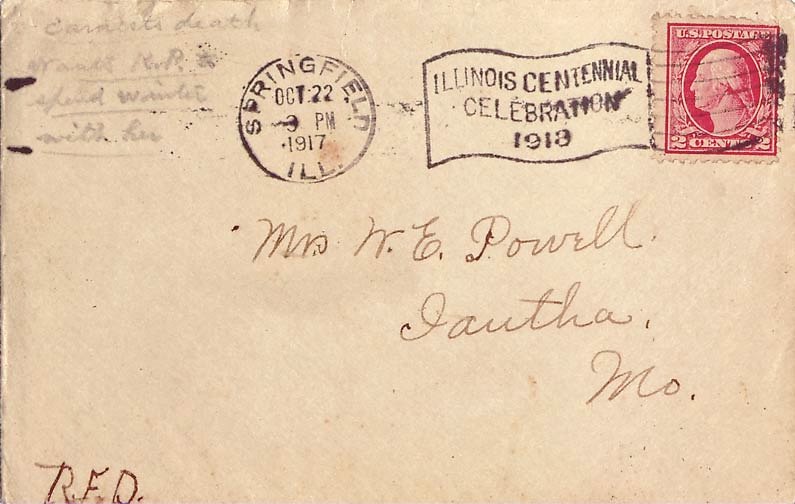 Earnests death
Wants R.P. to
spend winter
with her
SPRINGFIELD
OCT 22
9 PM
1917
ILL.
ILLINOIS CENTENNIAL
CELEBRATION
1918
U.S. POSTAGE
2 CENTS 2
Mrs W. E. Powell.
Iantha,
Mo.
R.F.D.